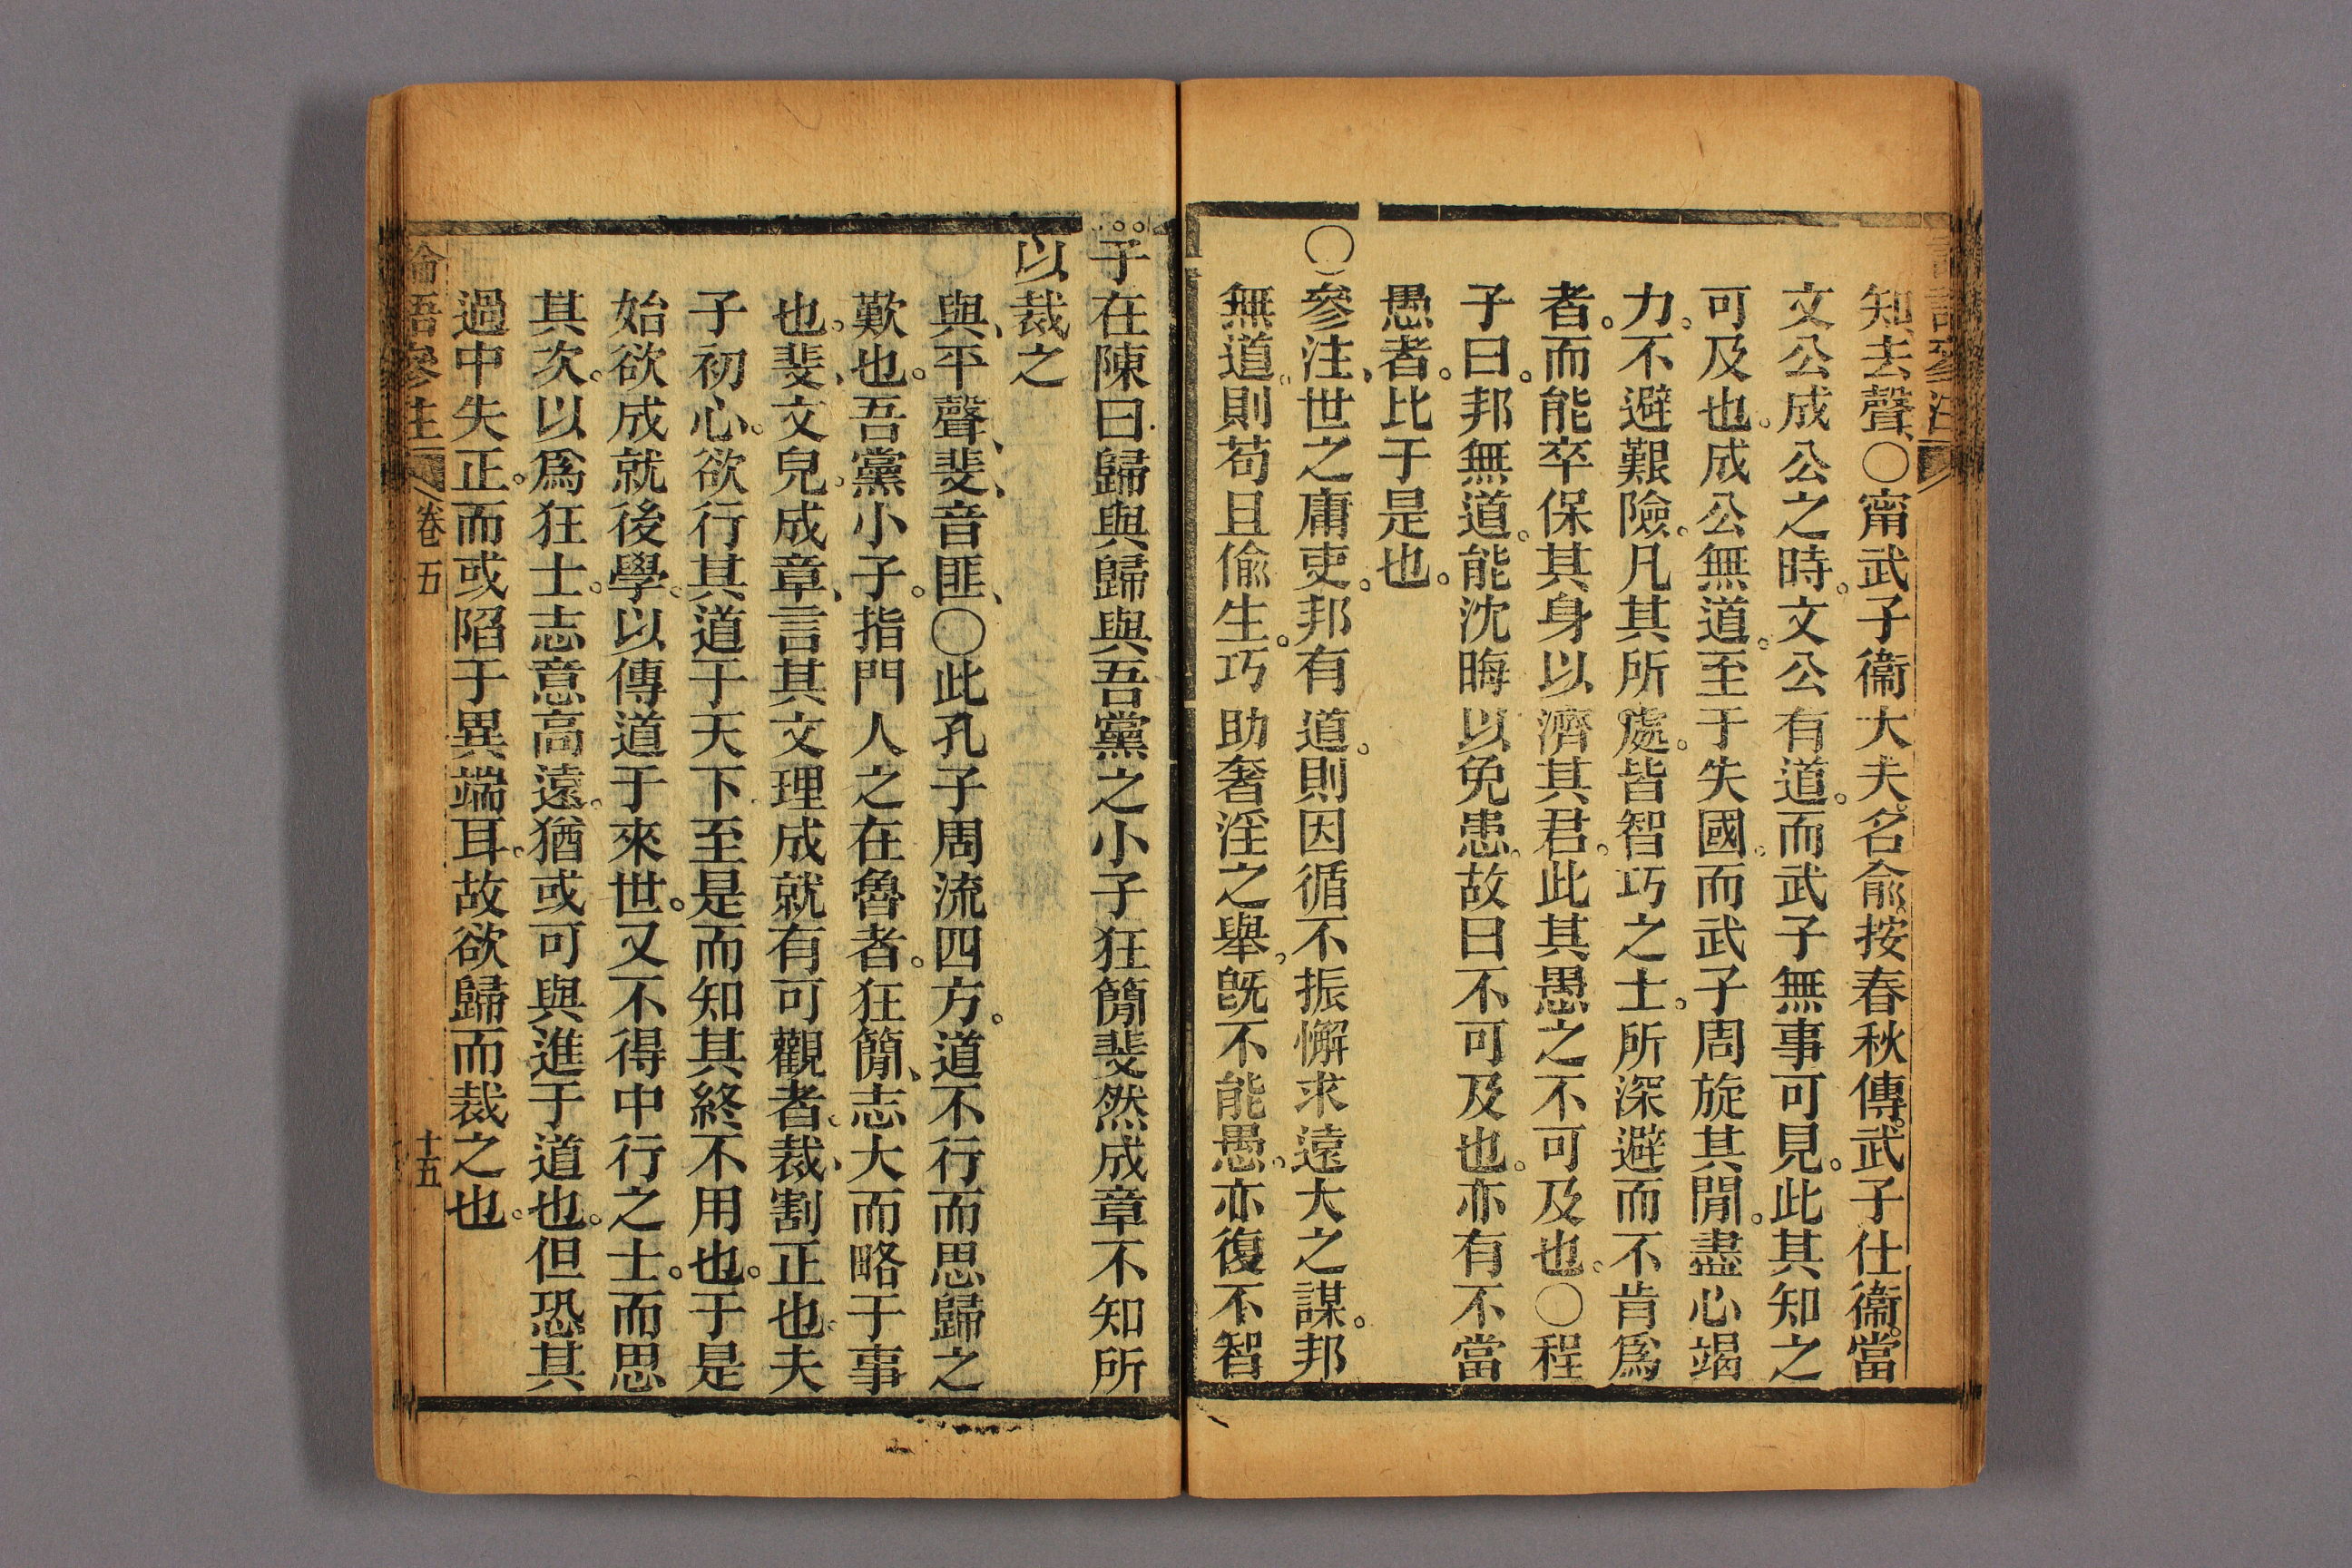 知、去聲、〇甯武子衞大夫。名俞。按春秋傳。武子仕衞。當
文公成公之時。文公有道。而武子無事可見。此其知之
可及也。成公無道。至于失國。而武子周旋其閒。盡心竭
力。不避艱險。凡其所處。皆智巧之士。所深避而不肯爲
者。而能卒保其身以濟其君。此其愚之不可及也。〇程
子曰。邦無道。能沈晦以免患。故曰不可及也。亦有不當
愚者。比于是也。
〇參注、世之庸吏。邦有道。則因循不振懈求遠大之謀。邦
無道。則苟且偸生。巧助奢淫之舉。旣不能愚。亦復不智
子在陳曰歸與歸與吾黨之小子狂簡斐然成章不知所
以裁之
與、平聲、斐、音匪、〇此孔子周流四方。道不行而思歸之
歎也。吾黨小子。指門人之在魯者。狂簡、志大而略于事
也。斐、文皃。成章、言其文理成就有可觀者。裁、割正也。夫
子初心。欲行其道于天下。至是而知其終不用也。于是
始欲成就後學。以傳道于來世。又不得中行之士。而思
其次。以爲狂士。志意高遠。猶或可與進于道也。但恐其
過中失正。而或陷于異端耳。故欲歸而裁之也。
論語參注 卷五 十五